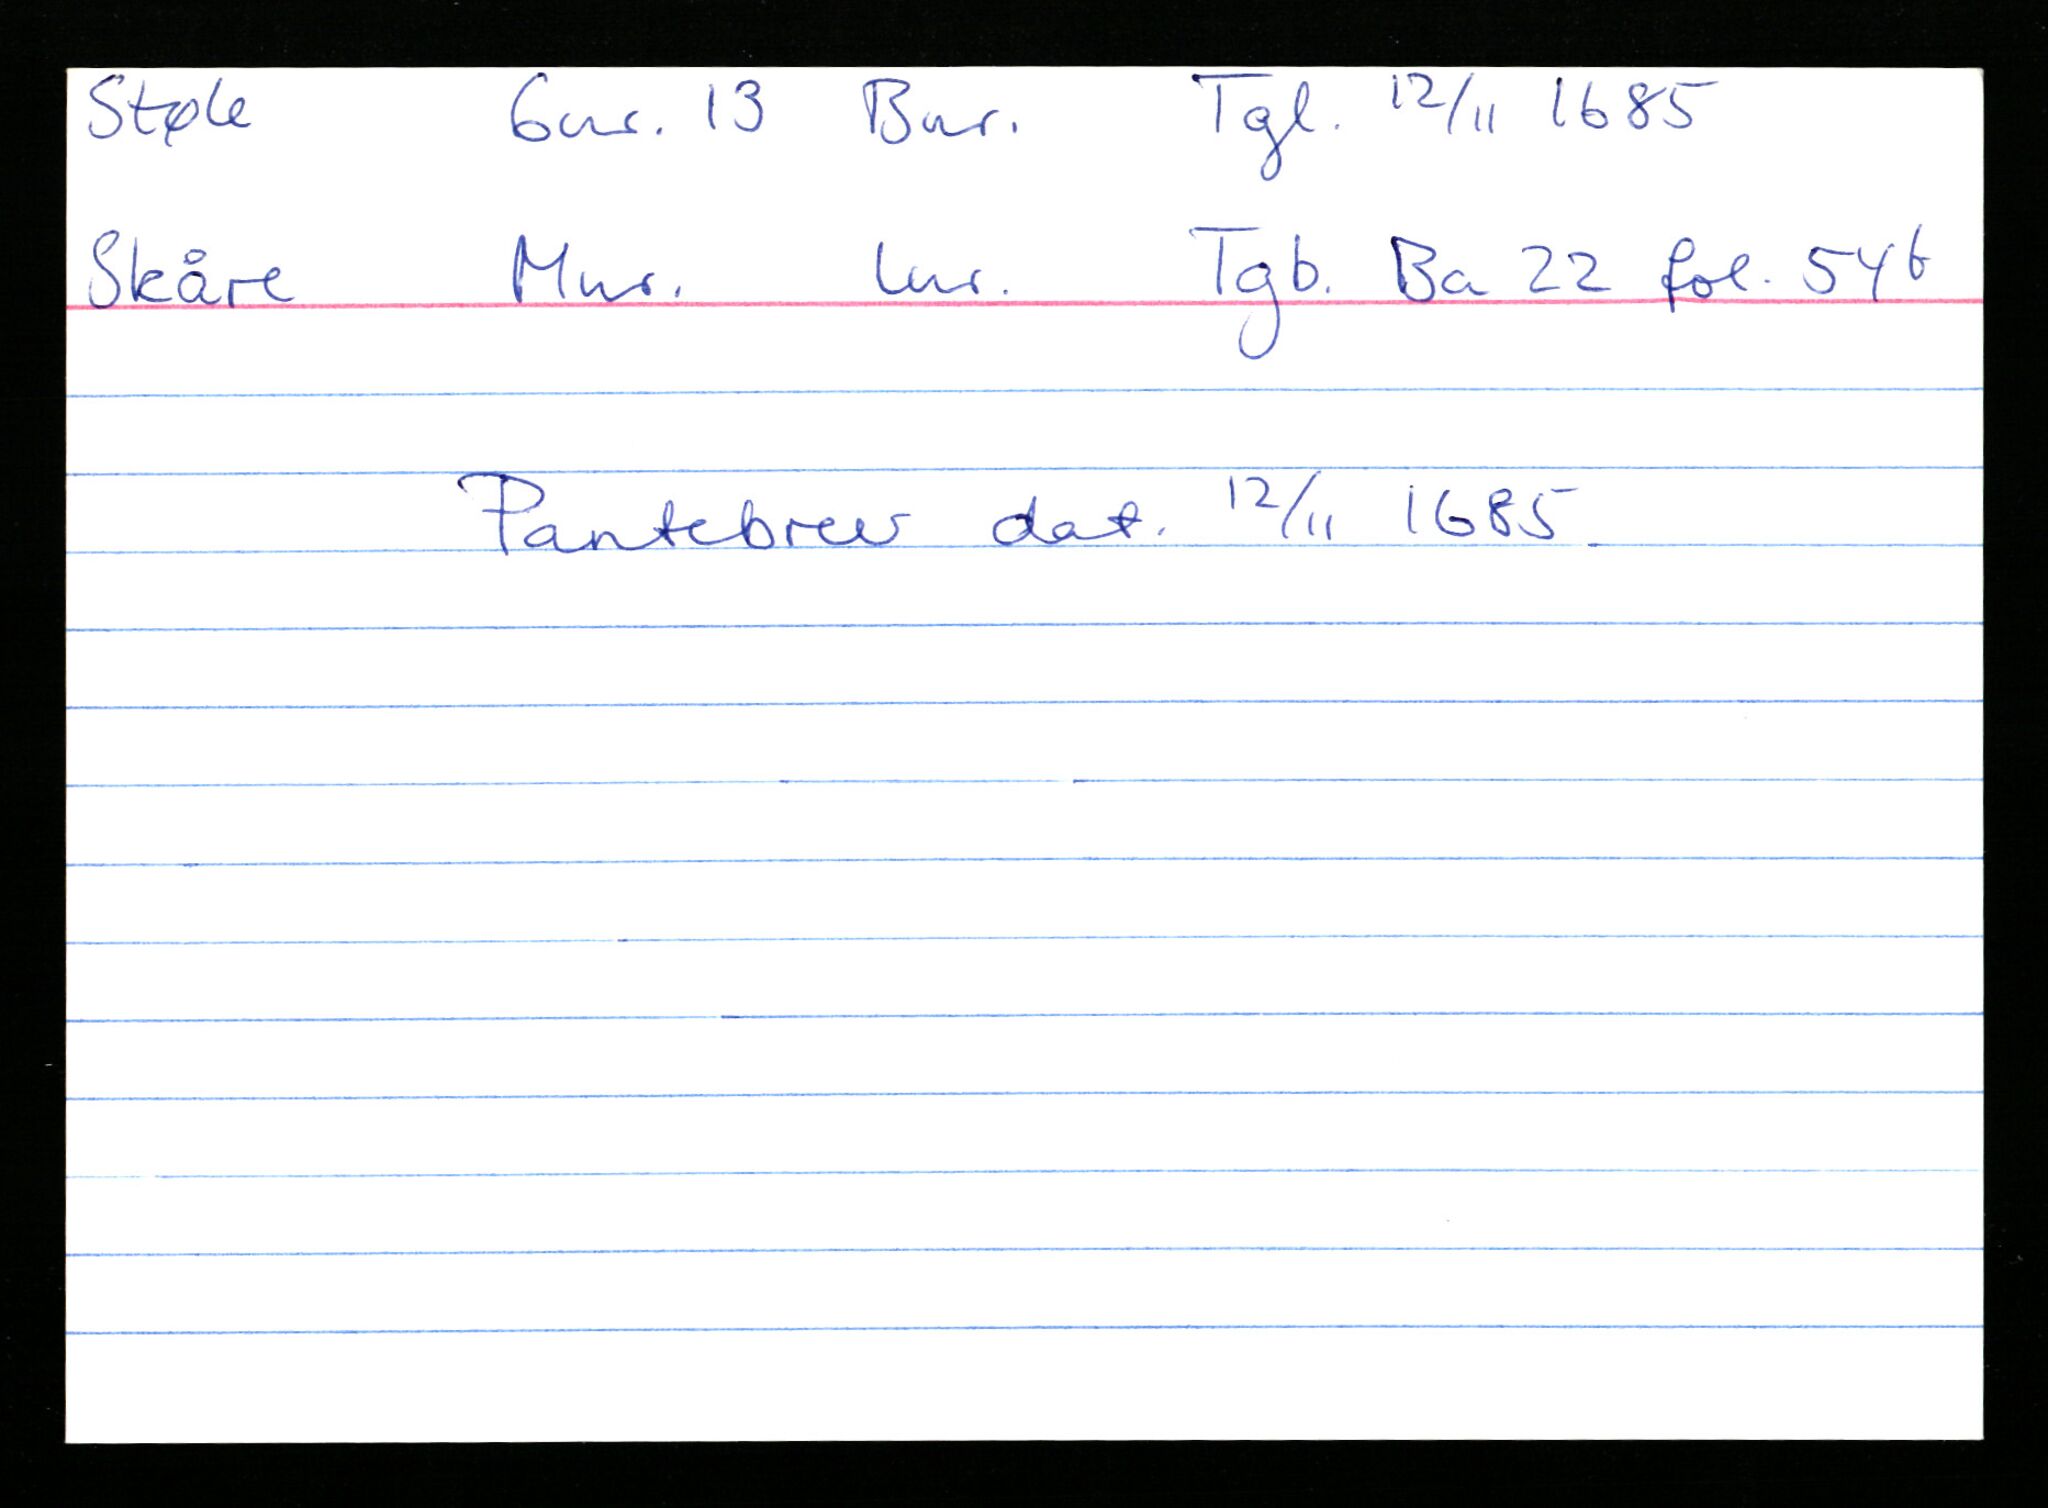 Støle Gnr. 13 Bnr. Tgl. 12/11 1685
Skåre Mnr. Lnr. Tgb. Ba 22 fol. 54b
Pantebrev dat. 12/11 1685